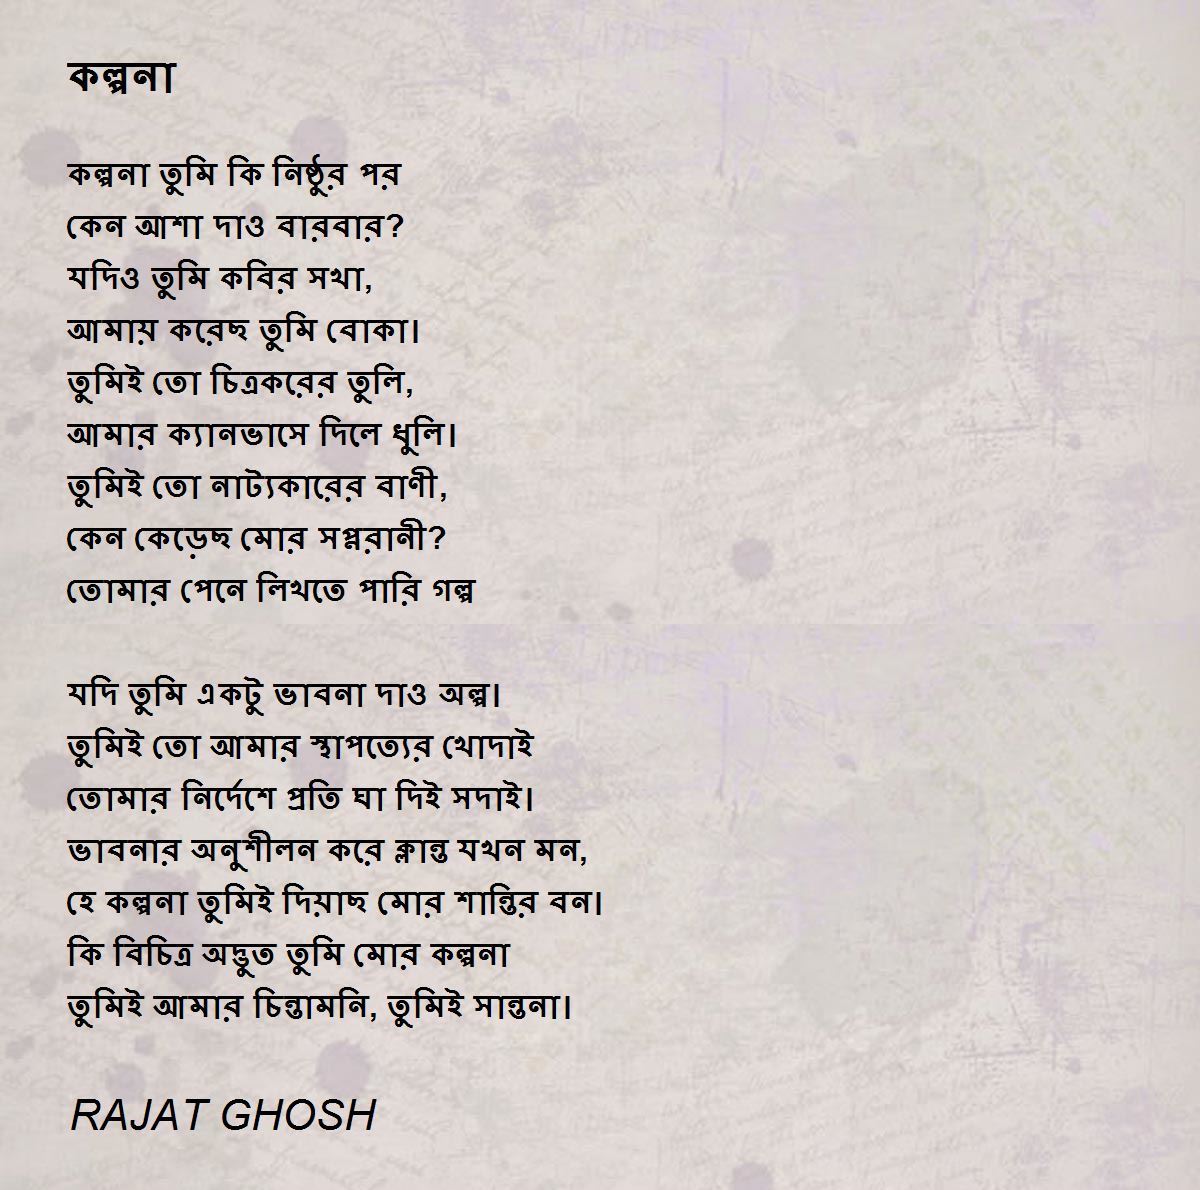 কল্পনা
কল্পনা তুমি কি নিষ্ঠুর পর
কেন আশা দাও বারবার?
যদিও তুমি কবির সখা,
আমায় করেছ তুমি বোকা।
তুমিই তো চিত্রকরের তুলি,
আমার ক্যানভাসে দিলে ধুলি।
তুমিই তো নাট্যকারের বাণী,
কেন কেড়েছ মোর সপ্নরানী?
তোমার পেনে লিখতে পারি গল্প
যদি তুমি একটু ভাবনা দাও অল্প।
তুমিই তো আমার স্থাপত্যের খোদাই
তোমার নির্দেশে প্রতি ঘা দিই সদাই।
ভাবনার অনুশীলন করে ক্লান্ত যখন মন,
হে কল্পনা তুমিই দিয়াছ মোর শান্তির বন।
কি বিচিত্র অদ্ভুত তুমি মোর কল্পনা
তুমিই আমার চিন্তামনি, তুমিই সান্তনা।
RAJAT GHOSH